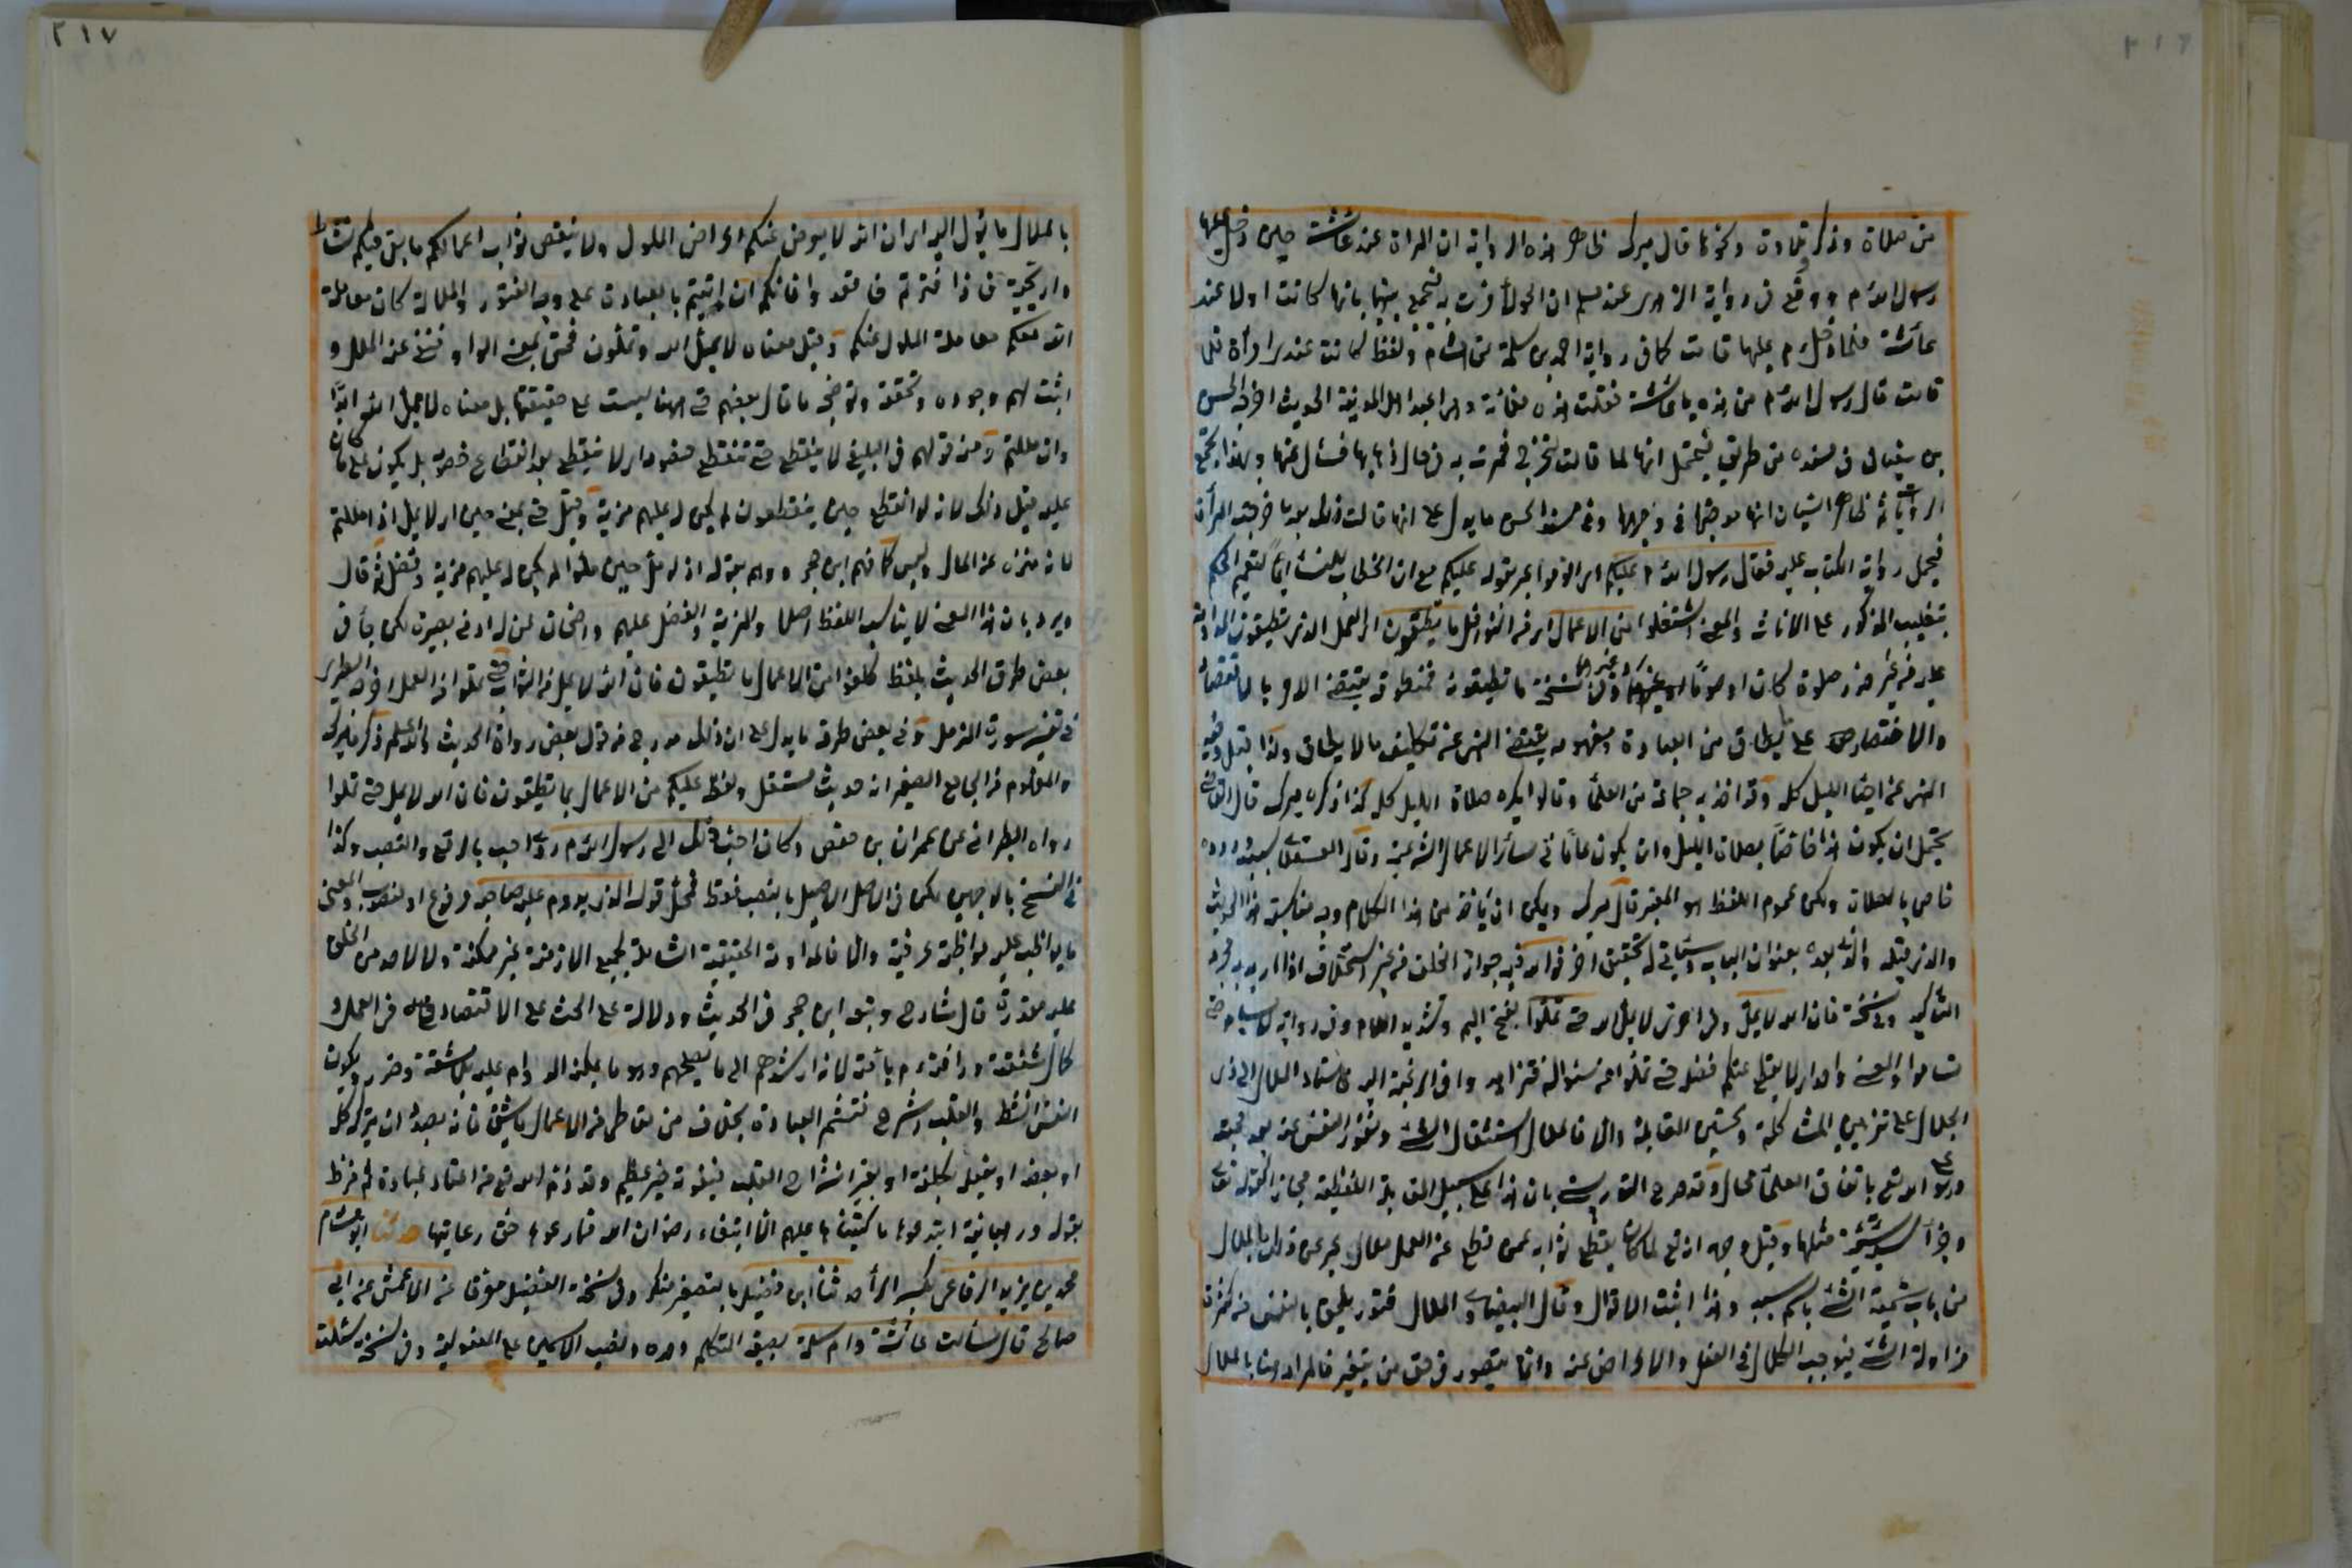 ٢١٦
من صلاة وذكر تلاوة ونحوها قال ميرك ظاهر هذه الرواية ان المرأة عند عائشة حين دخل عليها
رسول الله م ووقع في رواية الزهري عند مسلم ان الحولاء مرت به فيجمع بينهما بانها كانت اولا عند
عائشة فلما دخل م عليها قامت كما في رواية احمد بن سلمة عن هشام ولفظه كانت عندي امرأة فلما
قامت قال رسول الله م من هذه يا عائشة فقلت هذه فلانة وهي اعبد اهل المدينة الحديث اخرجه الحسن
بن سفيان في مسنده من طريقه فيحتمل انها لما قامت لتخرج فمرت به في حال ذهابها فسأل عنها وبهذا يجتمع
الروايتان ثم ظاهر السياق انها مدحتها في وجهها وفي مسند الحسن ما يدل على انها قالت ذلك بعد ما خرجت المرأة
فيحمل رواية الكتاب عليه فقال رسول الله م عليكم اي الزموا عبر بقوله عليكم مع ان الخطاب للنساء ايماء لتعميم الحكم
بتغليب الذكور على الاناث والمعنى اشتغلوا من الاعمال اي من النوافل ما تطيقون اي العمل الذي تطيقون المداومة
عليه من غير ضرر صلوة كان او صوما او غيرهما وفي نسخة ما تطيقونه فمنطوقه يقتضي الامر بالاقتصار
والاختصار على ما يطاق من العبادة ومفهومه يقتضي النهي عن تكليف ما لا يطاق ولذا قيل وفيه
النهي عن احياء الليل كله وقد اخذ به جماعة من العلماء وقالوا يكره صلاة الليل كله كذا ذكره ميرك قال القاضي
يحتمل ان يكون هذا خاصا بصلاة الليل وان يكون عاما في سائر الاعمال الشرعية وقال العسقلاني سبب وروده
خاص بالصلاة ولكن عموم اللفظ هو المعتبر قال ميرك ويمكن ان يأخذ من هذا الكلام وجه مناسبة هذا الحديث
والذي قبله والذي بعده بعنوان الباب وسيأتي له تحقيق اخر فوالله فيه جواز الحلف من غير استحلاف اذا اريد به مجرد
التأكيد وفي نسخة فان الله لا يمل وفي اخرى لا يمل الله حتى تملوا بفتح الميم وتشديد اللام وفي رواية لا يسأم حتى
تسأموا والمعنى واحد اي لا يقطع عنكم فضله حتى تملوا عن سؤاله فتزهدوا في الرغبة اليه فاسناد الملال الى ذي
الجلال على تزيين المشاكلة وتحسين المقابلة والا فالملال استثقال الشئ ونفور النفس عنه بعد محبته
وهو على الله تع باتفاق العلماء محال وقد صرح التوربشتي بان هذا على سبيل المقابلة اللفظية مجازا كقوله تعالى
وجزاء سيئة سيئة مثلها وقيل وجهه انه تع لما كان يقطع ثوابه عمن قطع عن العمل ملالا عبر عن ذلك بالملال
من باب تسمية الشئ باسم سببه وهذا اثبت الاقوال وقال البيضاوي الملال فتور يلحق بالنفس من كثرة
مزاولة الشئ فيوجب الكلال في الفعل والاعراض عنه وانما يتصور في حق من يتغير فالمراد هنا بالملال
٢١٧
بالملال ما يؤول اليه اي ان الله لا يعرض عنكم اعراض الملول ولا ينقص ثواب اعمالكم ما بقي فيكم نشاط
واريحية فاذا فترتم فاقعدوا فانكم ان اتيتم بالعبادة على وجه الفتور والملالة كان معاملة
الله معكم معاملة الملول عنكم وقيل معناه لا يمل الله وتملون فحتى بمعنى الواو فنفى عنه الملل و
اثبت لهم وجوده وتحققه وتوضيحه ما قال بعضهم حتى ههنا ليست على حقيقتها بل معناه لا يمل الله ابدا
وان مللتم ومنه قولهم في البليغ لا ينقطع حتى تنقطع خصومه اي لا ينقطع بعد انقطاع خصومه بل يكون على ما كان
عليه قبل ذلك لانه لو انقطع حين ينقطعون لم يكن له عليهم مزية وقيل حتى بمعنى حين اي لا يمل اذا مللتم
لانه منزه عن الملال وليس كما فهم ابن حجر ووهم بقوله اذ لو مل حين ملوا لم يكن له عليهم مزية وفضل ثم قال
ويرد بان هذا المعنى لا يناسب اللفظ اصلا والمزية والفضل عليهم واضحان لمن له ادنى بصيرة لكن جاء في
بعض طرق الحديث بلفظ كلفوا من الاعمال ما تطيقون فان الله لا يمل من الثواب حتى تملوا من العمل اخرجه الطبري
في تفسير سورة المزمل وفي بعض طرقه ما يدل على ان ذلك مدرج من قول بعض رواة الحديث والله اعلم ذكره ميرك
والمفهوم من الجامع الصغير انه حديث مستقل ولفظه عليكم من الاعمال بما تطيقون فان الله لا يمل حتى تملوا
رواه الطبراني عن عمران بن حصين وكان احب ذلك الى رسول الله م روي احب بالرفع والنصب وكذا
في النسخ بالوجهين لكن في الاصل الاصيل بالنصب فقط فمحل قوله الذي يدوم عليه صاحبه مرفوع او منصوب والمعنى
ما يواظب عليه مواظبة عرفية والا فالمداومة الحقيقية الشاملة لجميع الازمنة غير ممكنة ولا لاحد من الخلق
عليه مقدرة قال شارح وتبعه ابن حجر في الحديث دلالة على الحث على الاقتصاد في العمل و
كمال شفقته ورافته م بأمته لانه ارشدهم الى ما يصلحهم وهو ما يمكنه الدوام عليه بلا مشقة وضرر ويكون
النفس انشط والقلب اشرح فتستمر العبادة بخلاف من تعاطى من الاعمال ما يشق فانه بصدد ان يترك كله
او بعضه او يفعله بكلفة او بغير انشراح القلب فيفوته خير عظيم وقد ذم الله تع من اعتاد عبادة ثم فرط
بقوله ورهبانية ابتدعوها ما كتبناها عليهم الا ابتغاء رضوان الله فما رعوها حق رعايتها حدثنا ابو هشام
محمد بن يزيد الرفاعي بكسر الراء حدثنا ابن فضيل بالتصغير منكرا وفي نسخة الفضيل معرفا عن الاعمش عن ابي
صالح قال سألت عائشة وام سلمة بصيغة المتكلم وحده ونصب الاسمين على المفعولية وفي نسخة سئلت